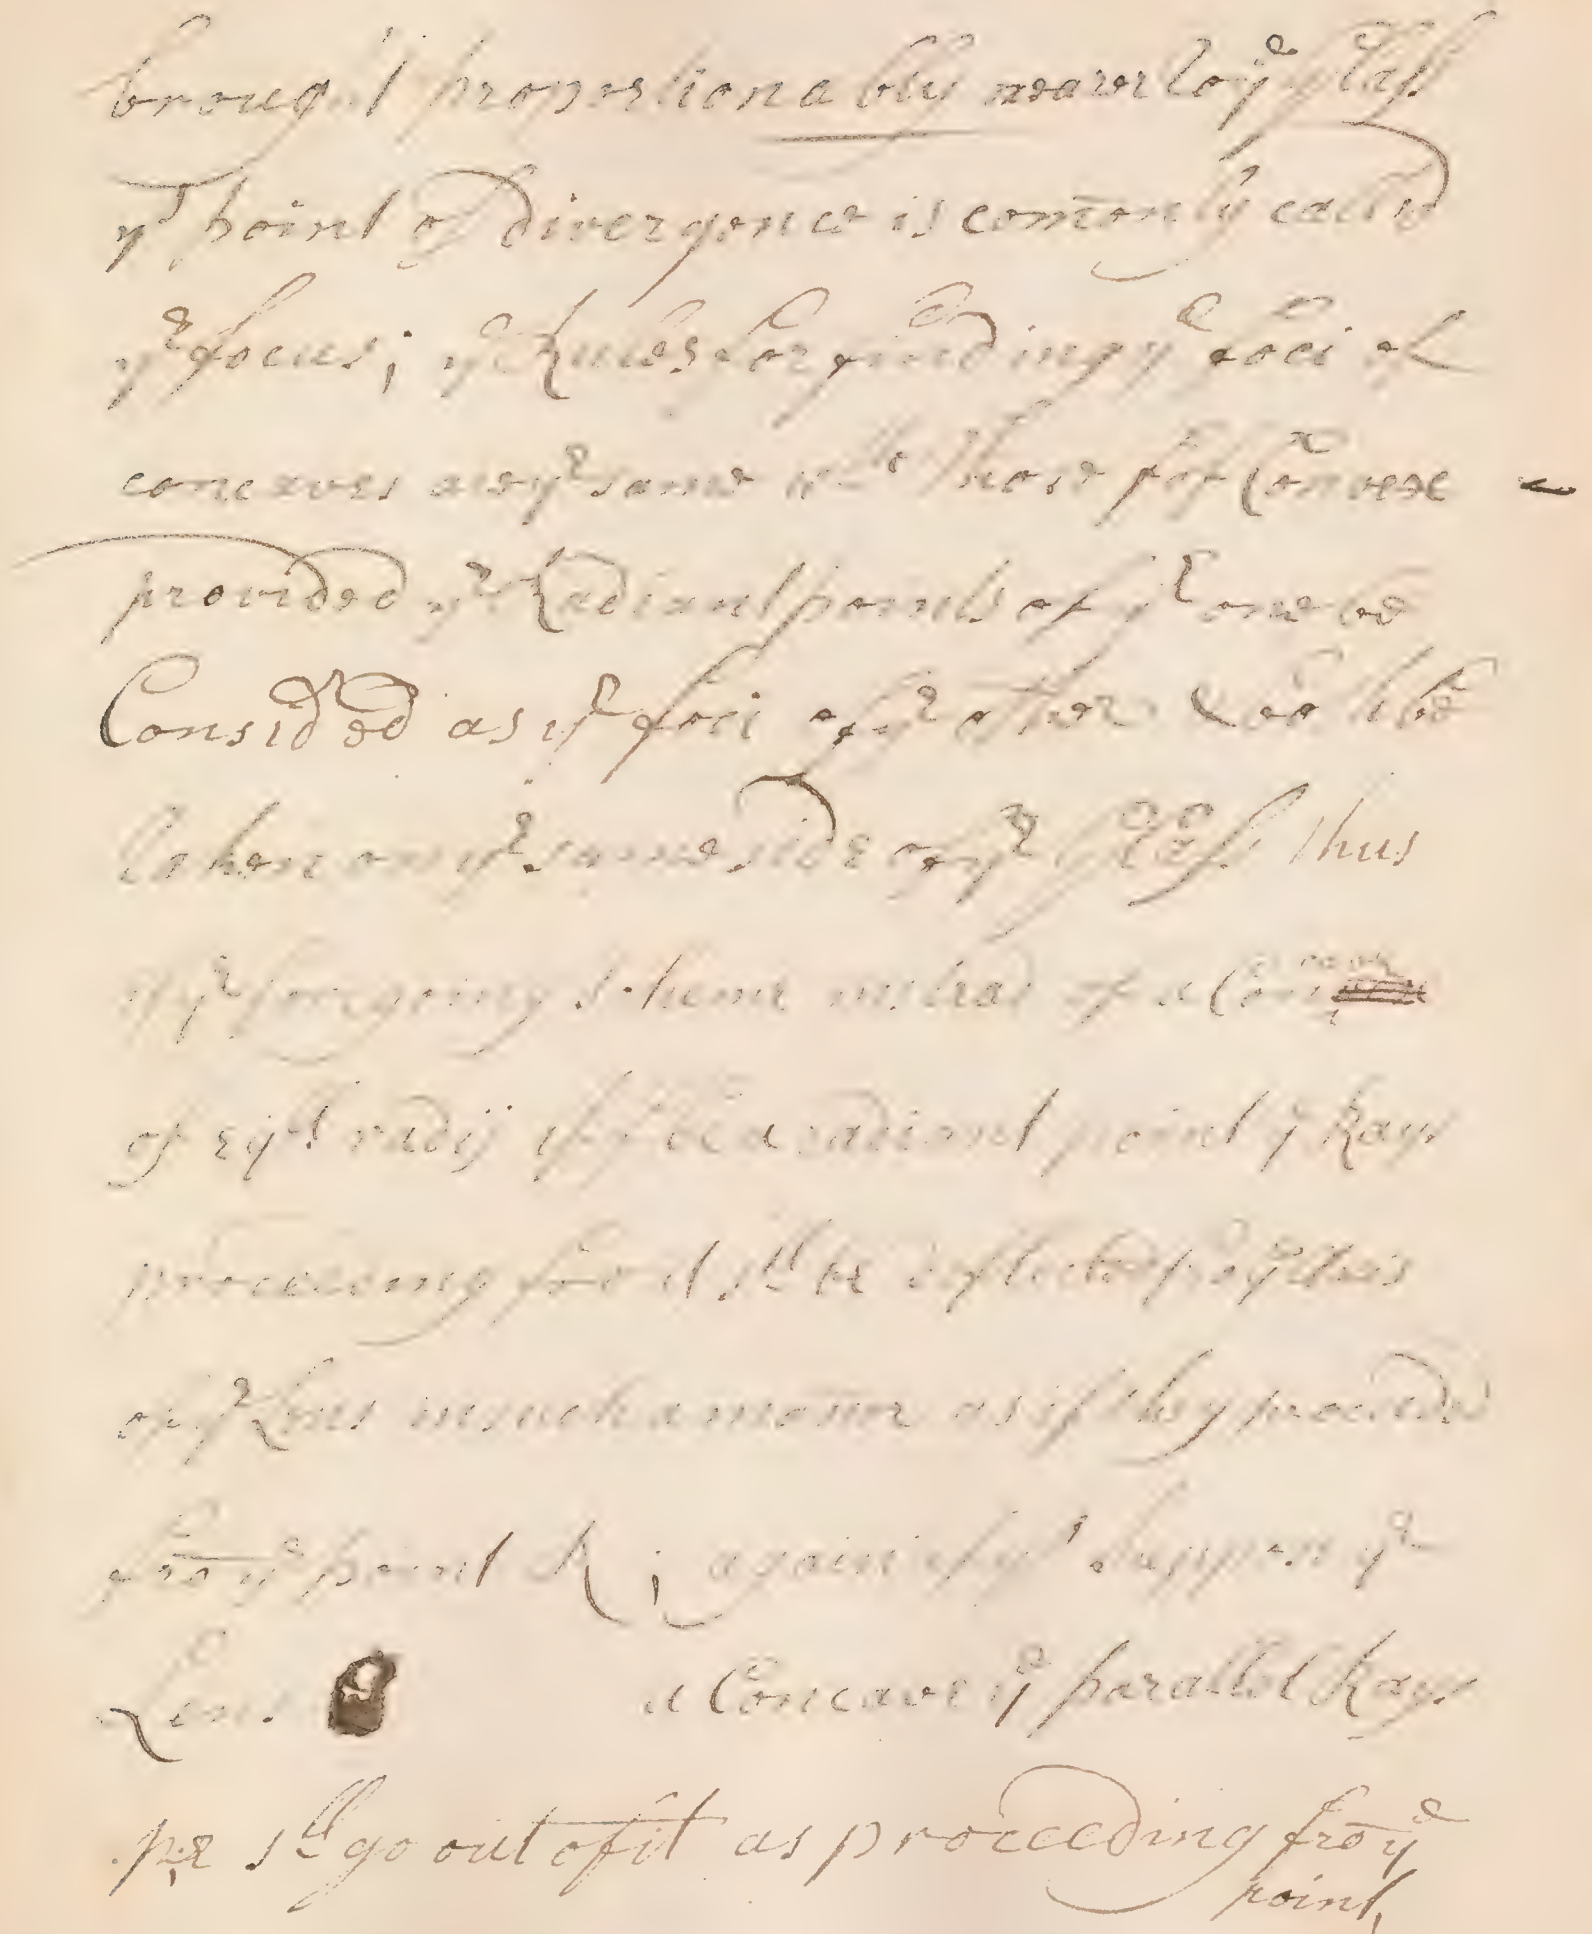 brought proportionably nearer to yͤ glass
yͭ point of divergence is com̄only called
yͤ focus; yͤ Rules for finding yͤ foci of
concaves are yͤ same wᵗʰ those for Convex
provided yͤ Radiant points of yͤ one be
Considͬed as yͤ foci of yͤ other & both be
taken on yͤ same side of yͤ glass thus
if yͤ foregoing scheme instead of a Concave
of radij if f be a radiant point yͤ Rays
proceeding fro it sˡˡ be yͤ this
of yͤ Lens in such a man̄er as if they proceeded
frō yͤ point ; again if yͭ yͤ
Lens a Concave yͤ parallel Rays
sˡˡ go out of it as proceeding frō yͤ
point,